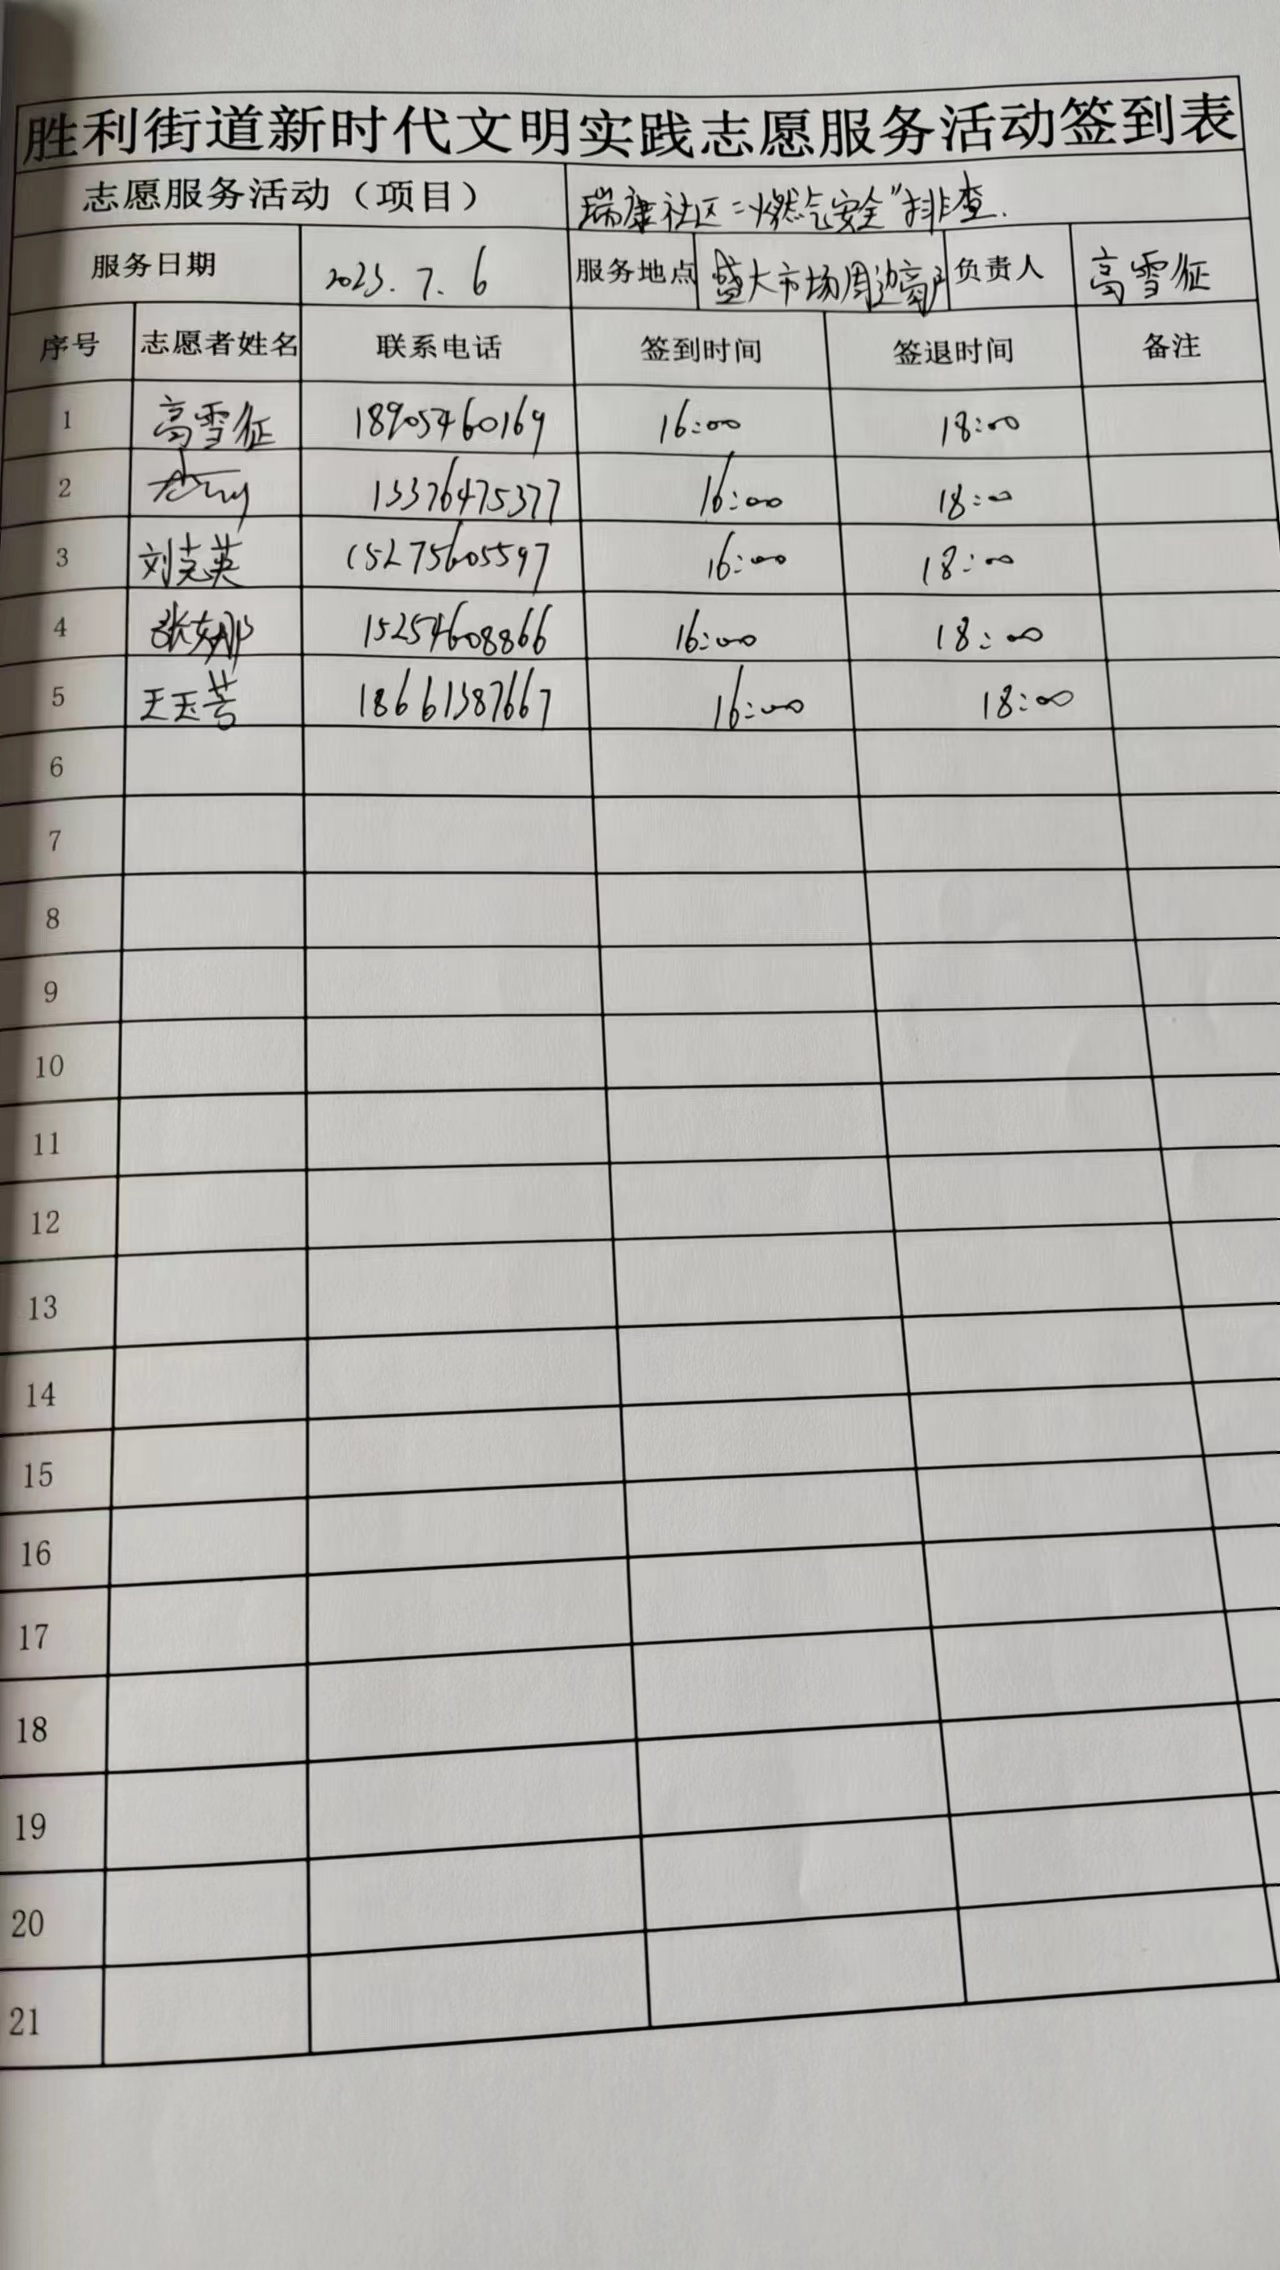 胜利街道新时代文明实践志愿服务活动签到表
志愿服务活动（项目） 瑞康社区："燃气安全"排查.
服务日期 2023.7.6 服务地点 盛大市场周边商户 负责人 高雪征
序号 志愿者姓名 联系电话 签到时间 签退时间 备注
1 高雪征 18905460169 16:00 18:00
2 13376475377 16:00 18:00
3 刘克英 15275605597 16:00 18:00
4 张娜 15254608866 16:00 18:00
5 王玉芳 18661387667 16:00 18:00
6
7
8
9
10
11
12
13
14
15
16
17
18
19
20
21